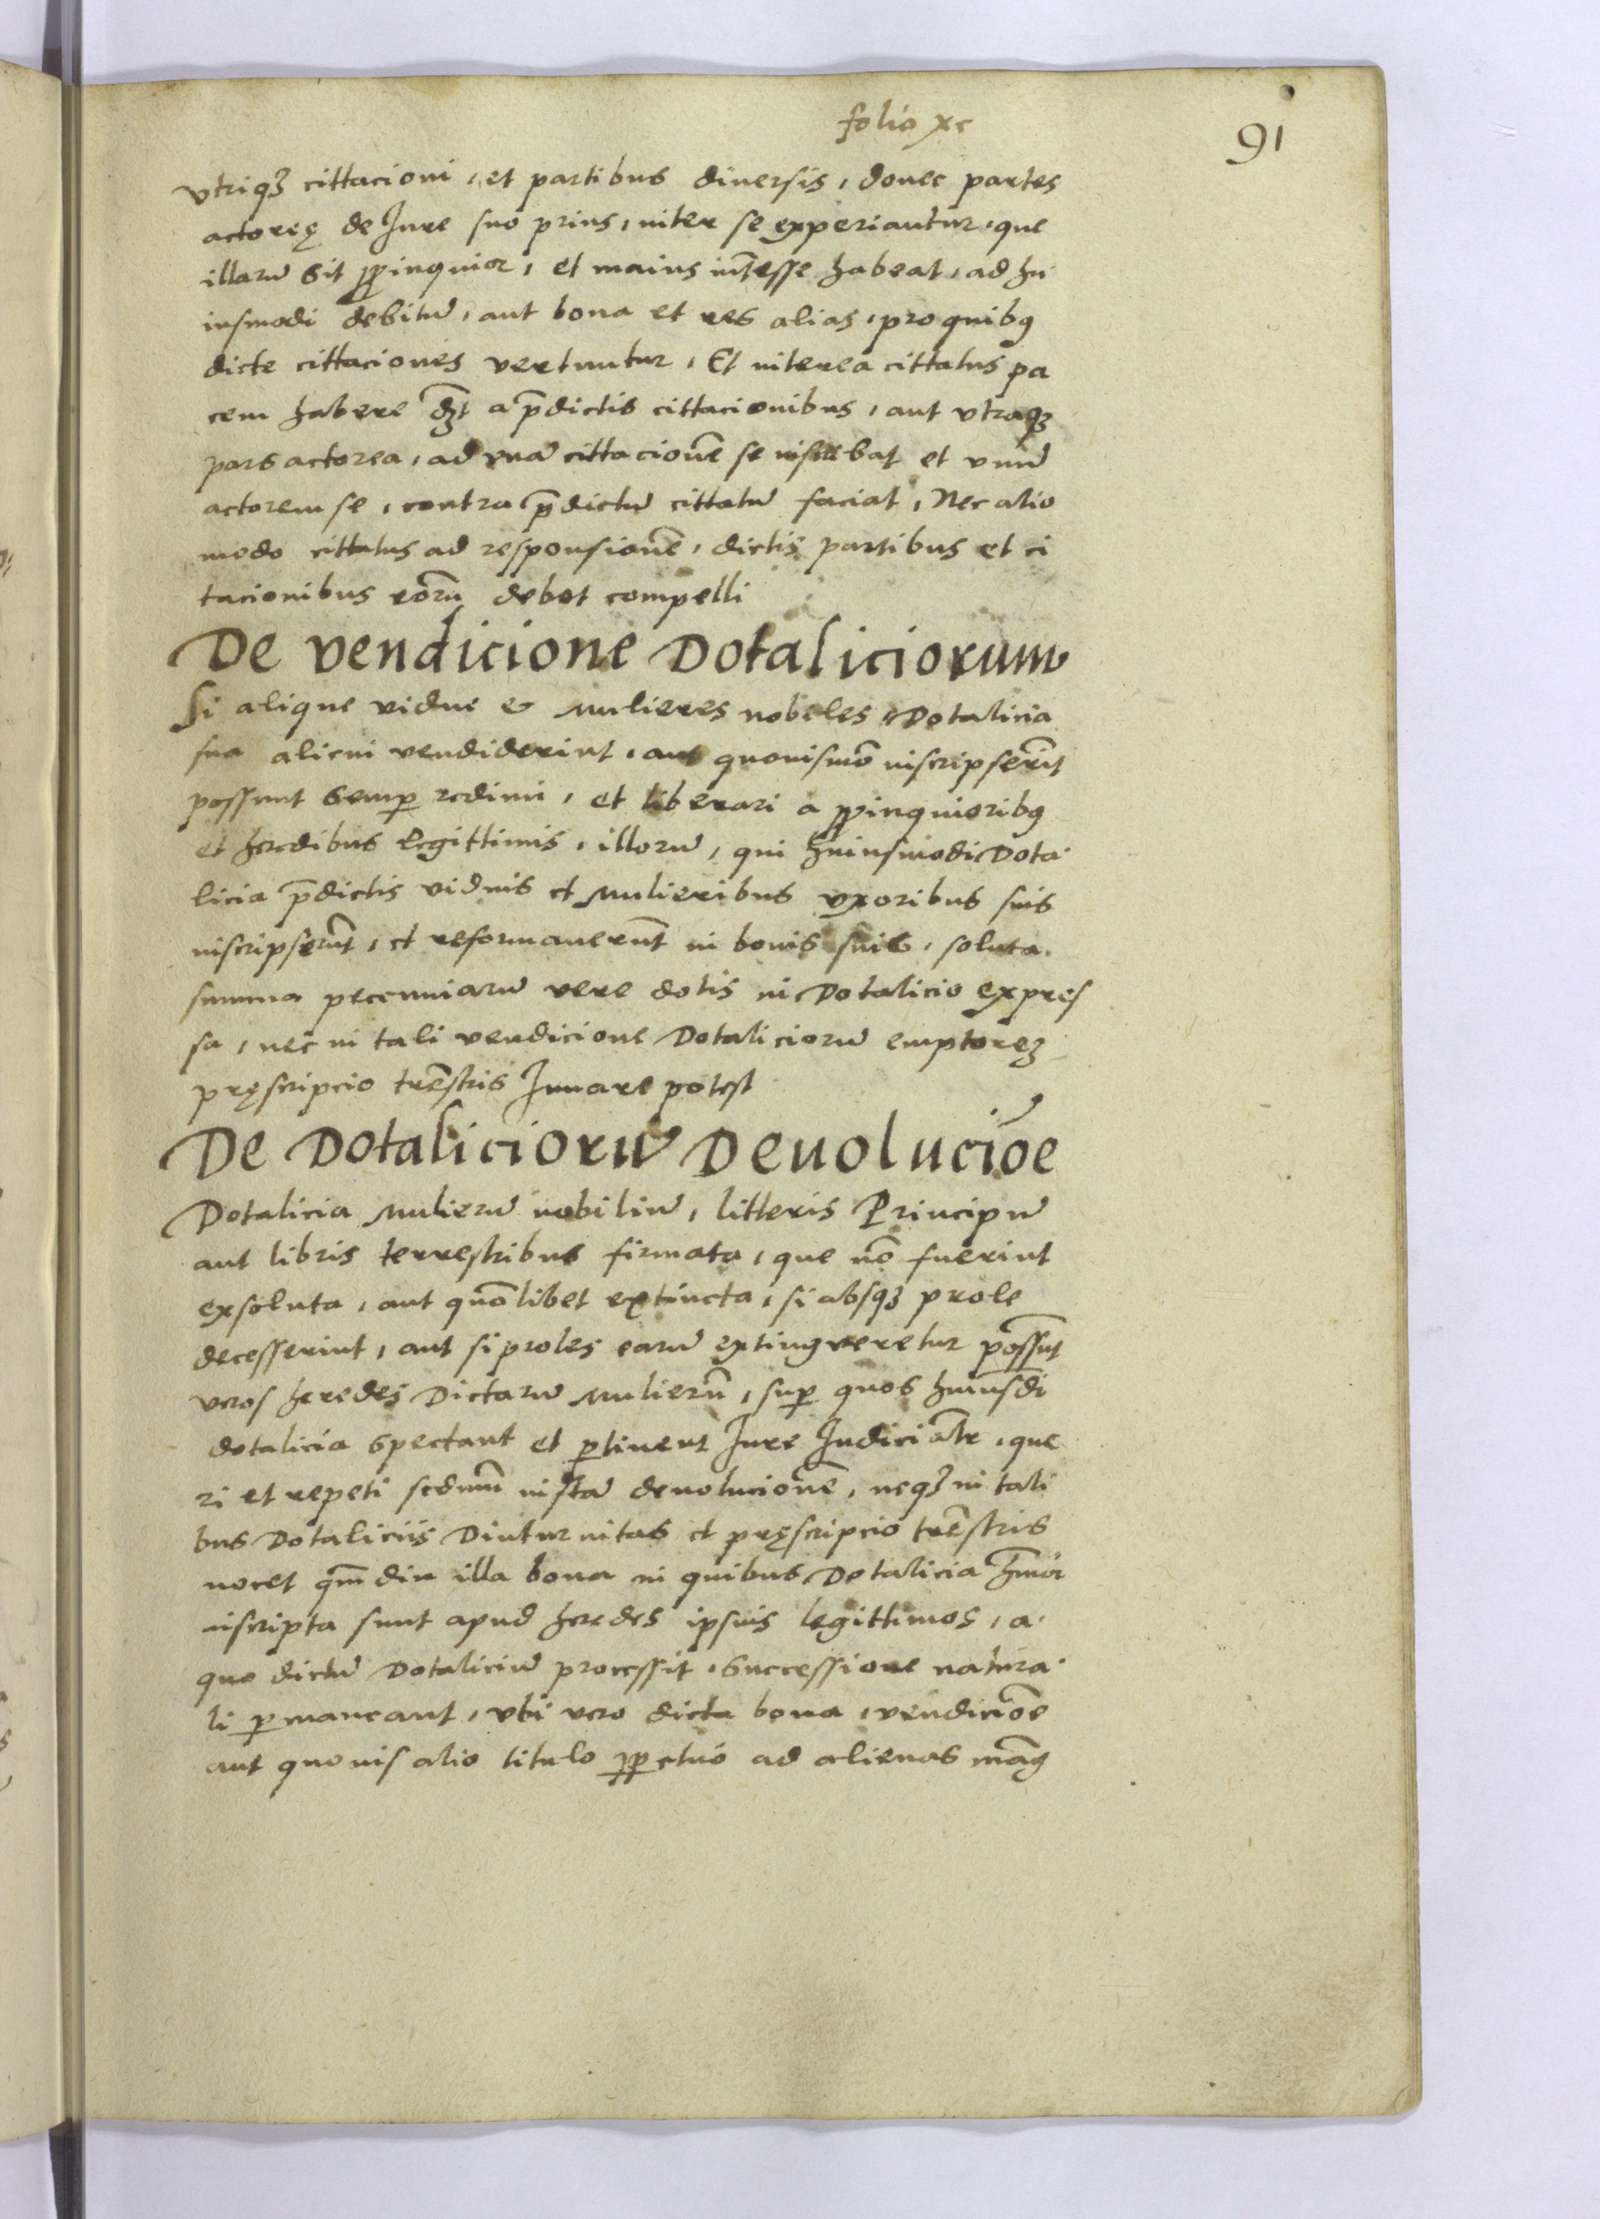 folio xc
91
vtriqꝫ cittacioni, et partibus diuersis, donec partes
actoreę de Iure suo prius, inter se experiantur, que
illarū sit ꝓpinquior, et maius intēesse habeat, ad hu
iusmodi debitū, aut bona et res alias, pro quibꝯ
dicte cittaciones vertuntur, Et interea cittatus pa
cem habere dꝫt a p̄dictis cittacionibus, aut vtraqꝫ
pars actorea, ad vnā cittacionē se inscribat et vnū
actorem se, contra p̄dictū cittatū faciat, Nec alio
modo cittatus ad responsionē, dictis partibus et ci
tacionibus eoꝝ debet compelli
De vendicione Dotaliciorum
Si alique vidue et Mulieres nobiles Dotalicia
sua alicui vendiderint, aut quouismō inscripserīt
possunt semꝑ redimi, et liberari a ꝓpinquioribꝯ
et heredibus legittimis, illorū, qui huiusmodi Dota
licia p̄dictis viduis et Mulieribus vxoribus suis
inscripserūt, et reformauerūt in bonis suis, soluta
summa pecuniarū vere dotis in Dotalicio expres
sa, nec in tali vendicione Dotaliciorū emptoreꝫ
pręscripcio trēstris Iuuare potest
De Dotaliciorū Deuolucioē
Dotalicia Mulierū nobiliū, litteris Principū
aut libris terrestribus firmata, que nō fuerint
exsoluta, aut quōlibet extincta, si absqꝫ prole
decesserint, aut si proles earū extingveretur possūt
veros heredes Dictarū Mulierū, suꝑ quos huiusdi
dotalicia spectant et ꝑtinent Iure Iudicialr̄, que
ri et repeti scdm̄ iustā deuolucionē, neqꝫ in tali
bus Dotaliciis Diuturnitas et pręscripcio trēstris
nocet qm̄diu illa bona in quibus Dotalicia hm̄oi
inscripta sunt apud heredes ipsius legittimos, a
quo dictū Dotaliciū processit, successione natura
li ꝑmaneant, vbi vero dicta bona, vendicioē
aut quouis alio titulo ꝑpetuo ad alienas manꝯ